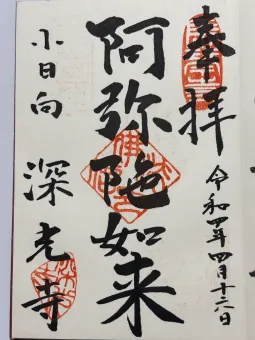 奉拝
令和四年四月十六日
阿弥陀如来
小日向
深光寺